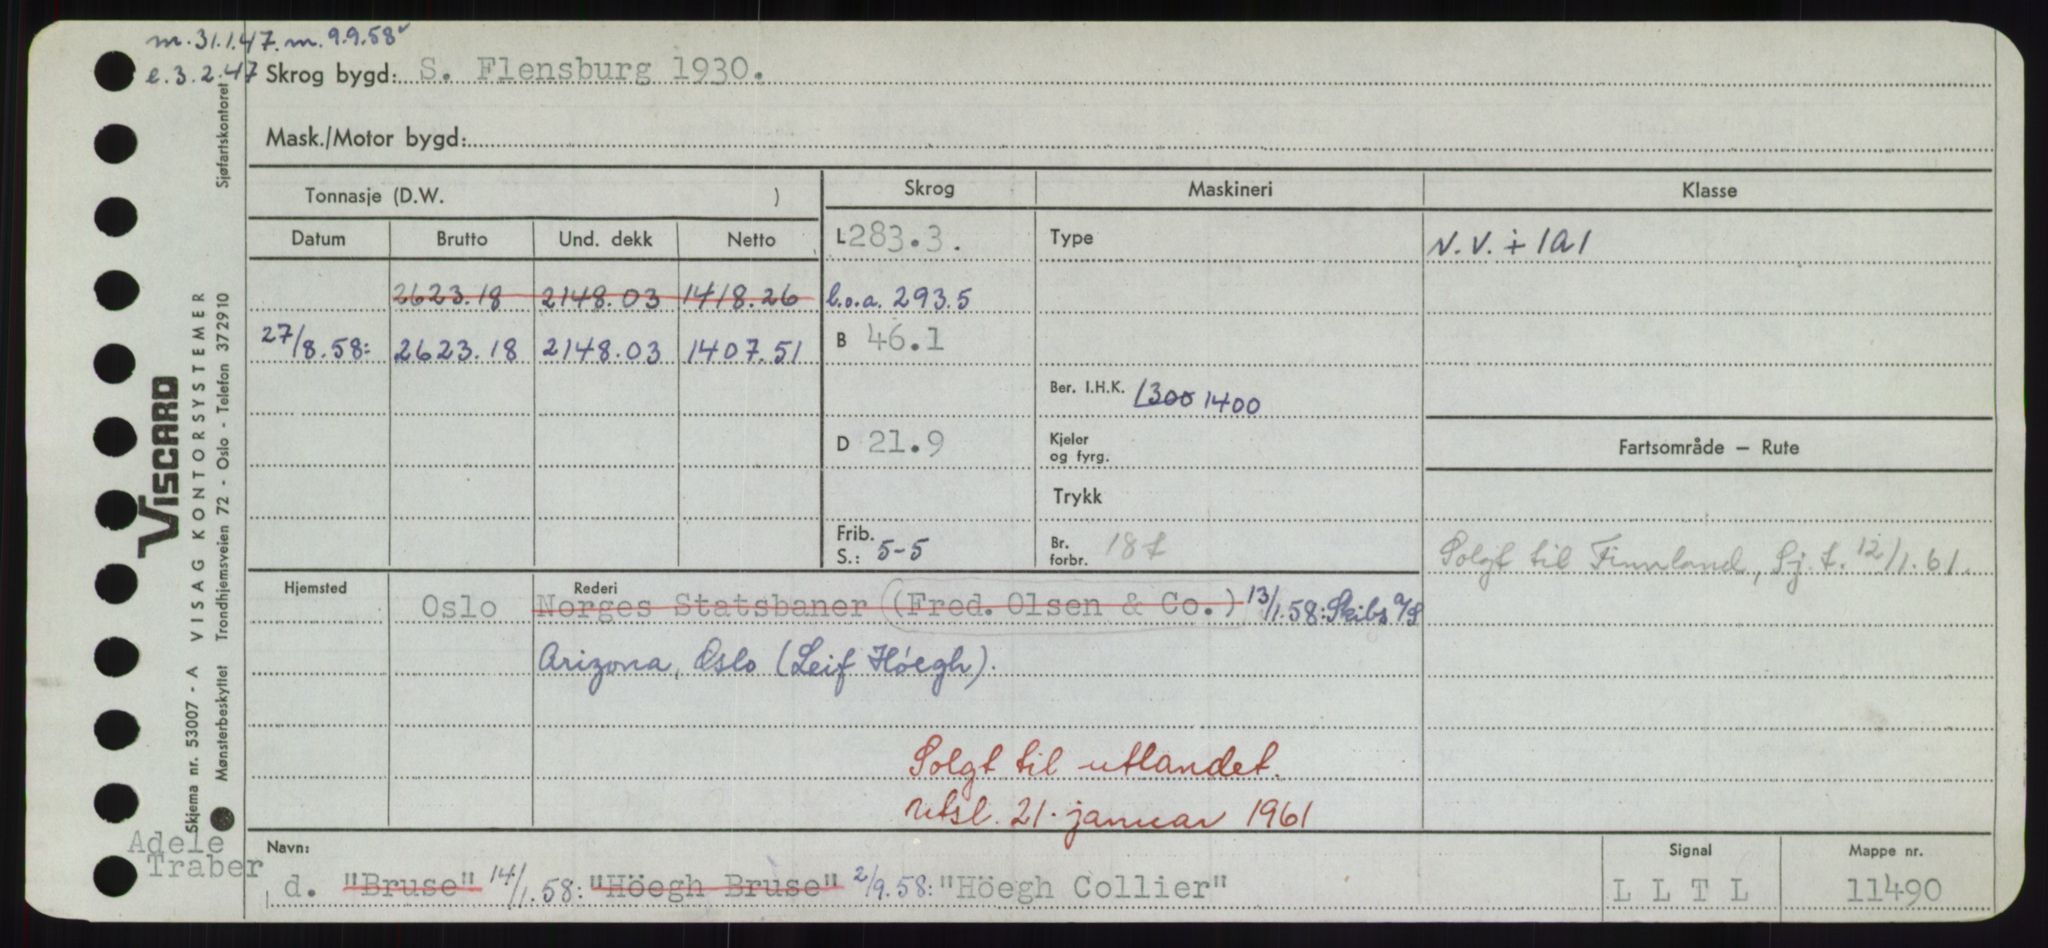 m. 31.1.47. m. 9.9.58
e. 3.2.47 Skrog bygd: S. Flensburg 1930.
Mask./Motor bygd:
Tonnasje (D.W. ) Skrog Maskineri Klasse
Datum Brutto Und. dekk Netto L 283.3. Type N.V. + 1A1
2623.18 2148.03 1418.26 l.o.a. 293.5
27/8.58: 2623.18 2148.03 1407.51 B 46.1
Ber. I.H.K. 1300 1400
D 21.9 Kjeler og fyrg. Fartsområde — Rute
Trykk
Frib. S.: 5-5 Br. forbr. 18 t Solgt til Finnland, Sj.f. 12/1.61.
Hjemsted Rederi
Oslo Norges Statsbaner (Fred. Olsen & Co.) 13/1.58: Skibs a/S
Arizona, Oslo (Leif Höegh).
Solgt til utlandet.
utsl. 21. januar 1961
Adele Traber
Navn: Signal Mappe nr.
d. "Bruse" 14/1.58: "Höegh Bruse" 2/9.58: "Höegh Collier" L L T L 11490
Sjøfartskontoret
VISCARD
Skjema nr. 53007 - A VISAG KONTORSYSTEMER
Mønsterbeskyttet Trondhjemsveien 72 - Oslo - Telefon 372910